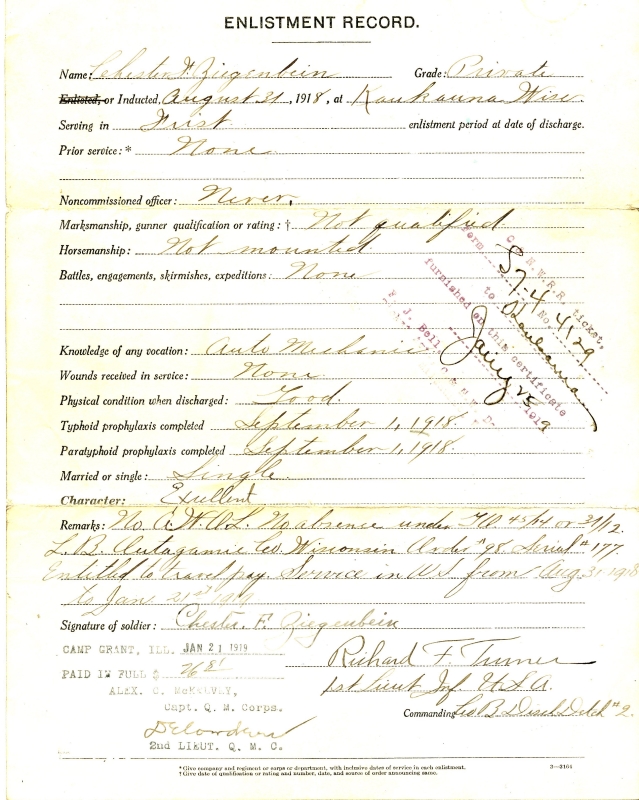 ENLISTMENT RECORD.
Name: Chester F. Ziegenbein Grade: Private
Enlisted, or Inducted, August 31, 1918, at Kaukauna Wisc.
Serving in First enlistment period at date of discharge.
Prior service: * None
Noncommissioned officer: Never.
Marksmanship, gunner qualification or rating: † Not qualified
Horsemanship: Not mounted
Battles, engagements, skirmishes, expeditions: None
C. & N.W.R.R. ticket,
Form 57-4 No. 4129
to Kaukauna
furnished on this certificate
1919
J. Bell
Knowledge of any vocation: Auto Mechanic
Wounds received in service: None
Physical condition when discharged: Good.
Typhoid prophylaxis completed September 1, 1918.
Paratyphoid prophylaxis completed September 1, 1918.
Married or single: Single
Character: Exellent
Remarks: No A.W.O.L. No absence under G.O. 45/14 or 31/12.
L.B. Outagamie Co. Wisconsin Order #98 Serial #177
Entitled to travel pay Service in US from Aug 31-1918
to Jan 21st 1919
Signature of soldier: Chester F. Ziegenbein
CAMP GRANT, ILL. JAN 21 1919
PAID IN FULL $
ALEX. C. McKELVEY,
Capt. Q. M. Corps.
2nd LIEUT. Q. M. C.
Richard F. Turner
1st Lieut Inf. U.S.A.
Commanding Disch Detch #2.
* Give company and regiment or corps or department, with inclusive dates of service in each enlistment.
† Give date of qualification or rating and number, date, and source of order announcing same.
3—3164